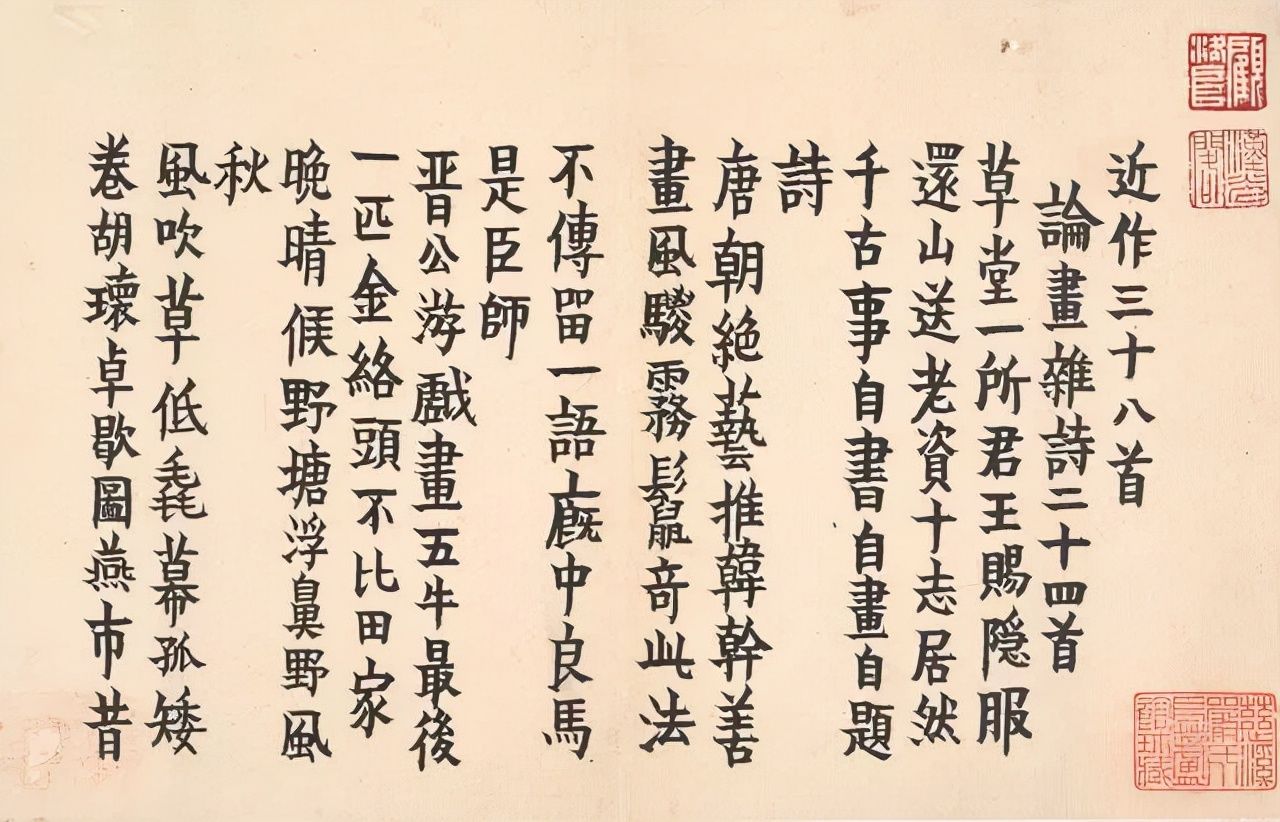 近作三十八首
論畫雜詩二十四首
草堂一所君王賜隐服
還山送老資十志居然
千古事自書自畫自題
詩
唐朝絶藝推韓幹善
畫風騣霧鬛竒此法
不傳留一語廐中良馬
是臣師
晋公游戲畫五牛最後
一匹金絡頭不比田家
晚晴候野塘浮鼻野風
秋
風吹草低毳幕孤矮
卷胡瓌卓歇圖燕市昔
顧洛阜
漢光閣